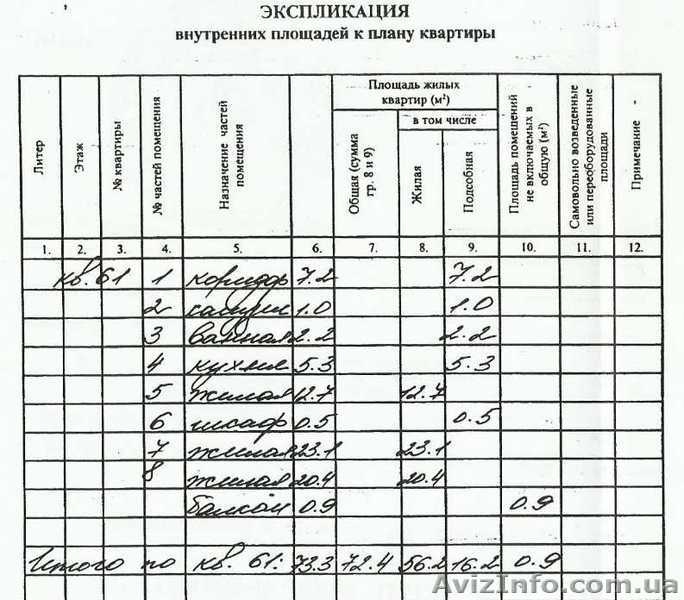 ЭКСПЛИКАЦИЯ
внутренних площадей к плану квартиры
Литер
Этаж
№ квартиры
№ частей помещения
Назначение частей помещения
Площадь жилых квартир (м²)
Общая (сумма гр. 8 и 9)
в том числе
Жилая
Подсобная
Площадь помещений не включаемых в общую (м²)
Самовольно возведенные или переоборудованные площади
Примечание
1. 2. 3. 4. 5. 6. 7. 8. 9. 10. 11. 12.
кв. 61 1 коридор 7.2 7.2
2 санузел 1.0 1.0
3 ванная 2.2 2.2
4 кухня 5.3 5.3
5 жилая 12.7 12.7
6 шкаф 0.5 0.5
7 жилая 23.1 23.1
8 жилая 20.4 20.4
балкон 0.9 0.9
Итого по кв. 61: 73.3 72.4 56.2 16.2 0.9
AvizInfo.com.ua